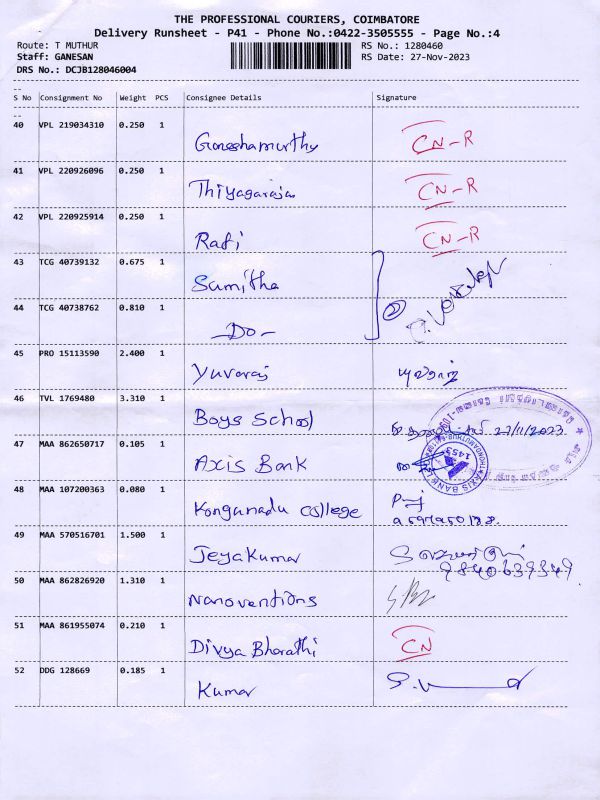 THE PROFESSIONAL COURIERS, COIMBATORE
Delivery Runsheet - P41 - Phone No.:0422-3505555 - Page No.:4
Route: T MUTHUR RS No.: 1280460
Staff: GANESAN RS Date: 27-Nov-2023
DRS No.: DCJB128046004
S No Consignment No Weight PCS Consignee Details Signature
40 VPL 219034310 0.250 1 Ganeshamurthy CN-R
41 VPL 220926096 0.250 1 Thiyagarajan CN-R
42 VPL 220925914 0.250 1 Rafi CN-R
43 TCG 40739132 0.675 1 Sumitha
44 TCG 40738762 0.810 1 -Do-
45 PRO 15113590 2.400 1 Yuvaraj
46 TVL 1769480 3.310 1 Boys School 27/11/2023
47 MAA 862650717 0.105 1 Axis Bank
AXIS BANK
1453
48 MAA 107200363 0.080 1 Kongunadu college
49 MAA 570516701 1.500 1 Jeyakumar
50 MAA 862826920 1.310 1 Nanoventions
51 MAA 861955074 0.210 1 Divya Bharathi CN
52 DDG 128669 0.185 1 Kumar